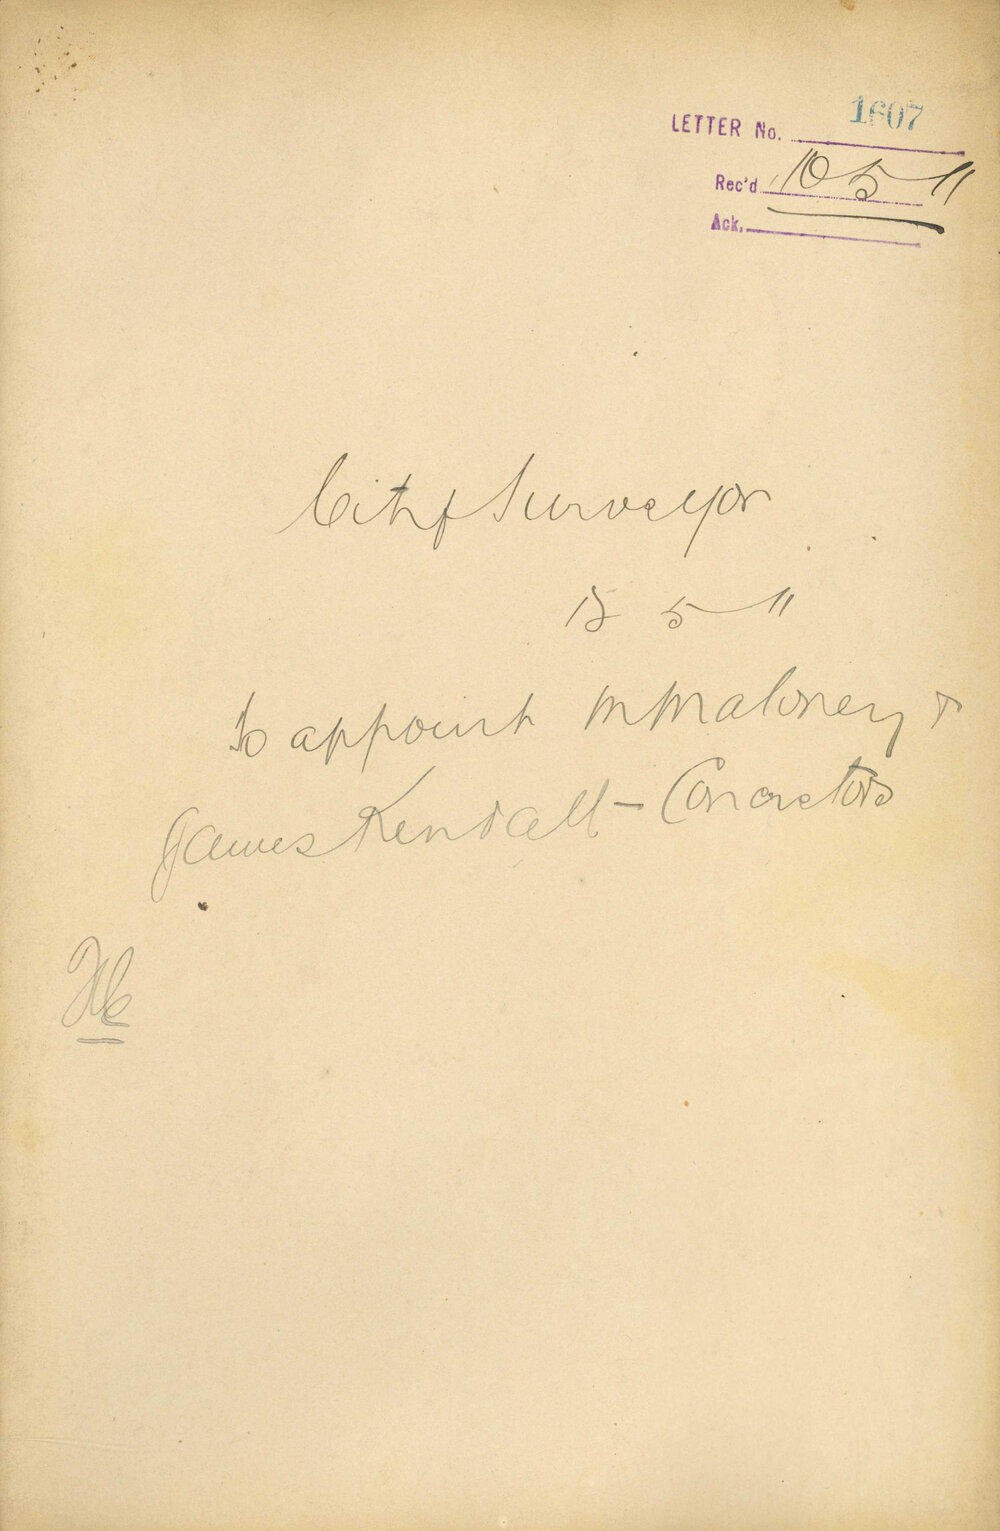 LETTER No. 1607
Rec'd 10 5 11
Ack.
City Surveyor
5 11
To appoint M Maloney &
James Kendall - Concretors